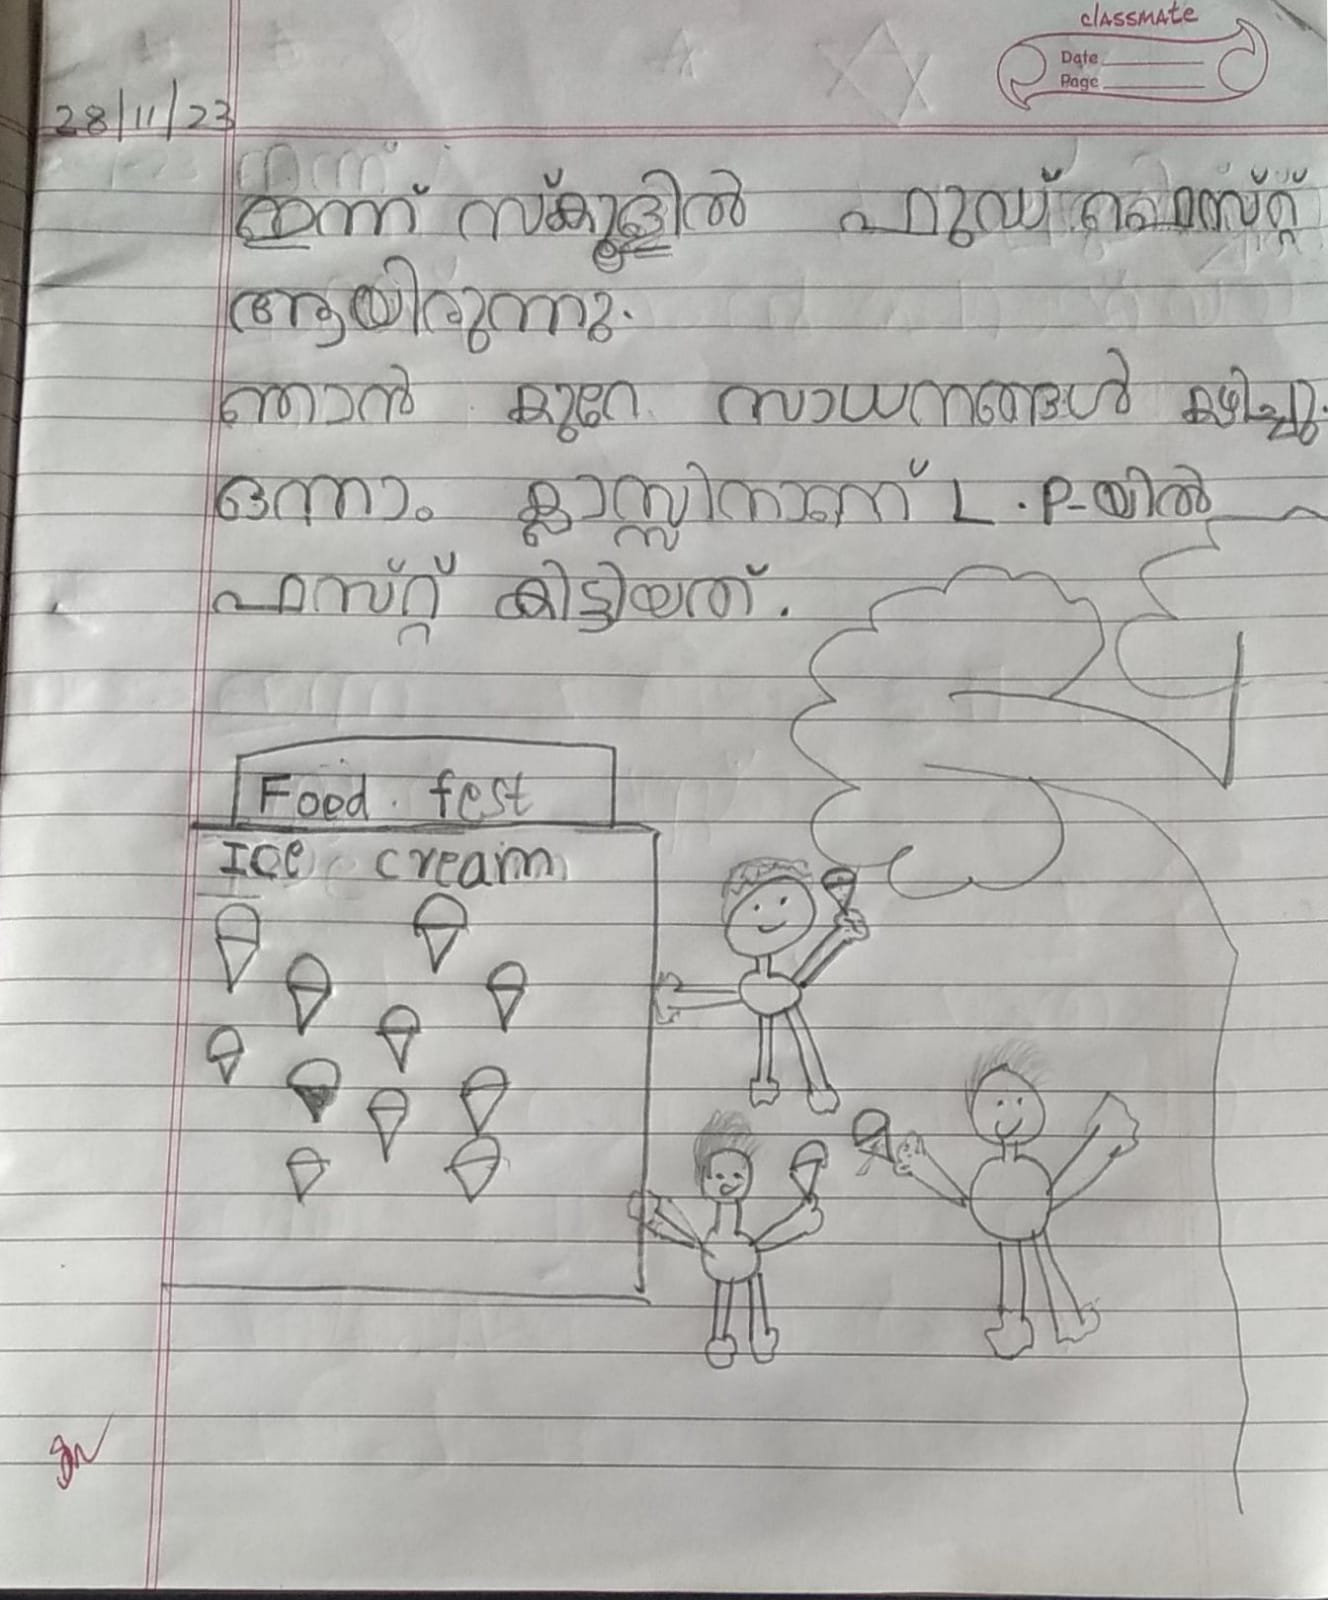 classmate
Date
Page
28/11/23
ഇന്ന് സ്കൂളിൽ ഫുഡ് ഫെസ്റ്റ്
ആയിരുന്നു.
ഞാൻ കുറേ സാധനങ്ങൾ കഴിച്ചു.
ഒന്നാം ക്ലാസ്സിനാണ് L.P-യിൽ
ഫസ്റ്റ് കിട്ടിയത്.
Food fest
Ice cream